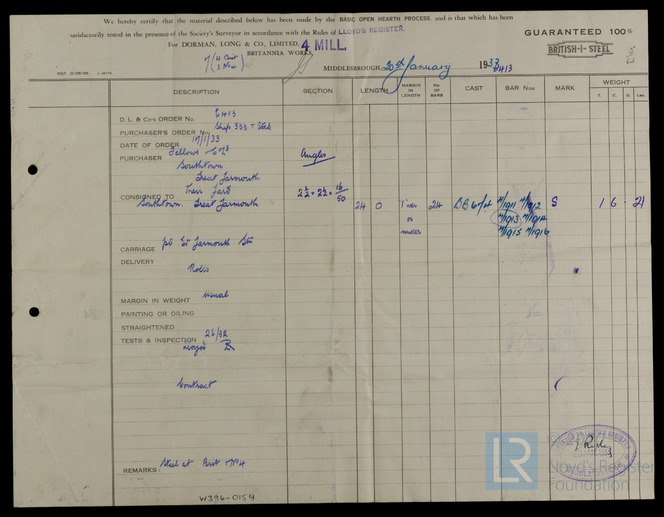 We hereby certify that the material described below has been made by the BASIC OPEN HEARTH PROCESS, and is that which has been
satisfactorily tested in the presence of the Society's Surveyor in accordance with the Rules of LLOYD'S REGISTER.
For DORMAN, LONG & CO., LIMITED, 4 MILL.
BRITANNIA WORKS
GUARANTEED 100%
BRITISH STEEL
MIDDLESBROUGH, 20th January 1933
DESCRIPTION SECTION LENGTH MARGIN IN LENGTH No. OF BARS CAST BAR Nos MARK WEIGHT
T. C. Q. Lbs.
D. L. & Co's ORDER No.
PURCHASER'S ORDER No. Ships 333
DATE OF ORDER 17/1/33
PURCHASER Fellows
Southtown
Great Yarmouth
Angles
CONSIGNED TO
Southtown. Great Yarmouth
2½ × 2½ × 16/50
24 0 24 M1911 M1912 S 1 6 - 21
M1913 M1914
M1915 M1916
CARRIAGE
DELIVERY
MARGIN IN WEIGHT Usual
PAINTING OR OILING
STRAIGHTENED
TESTS & INSPECTION 26/32
Lloyds
Contract
REMARKS: Steel at
W396-0154
LR
Lloyd's Register
Foundation